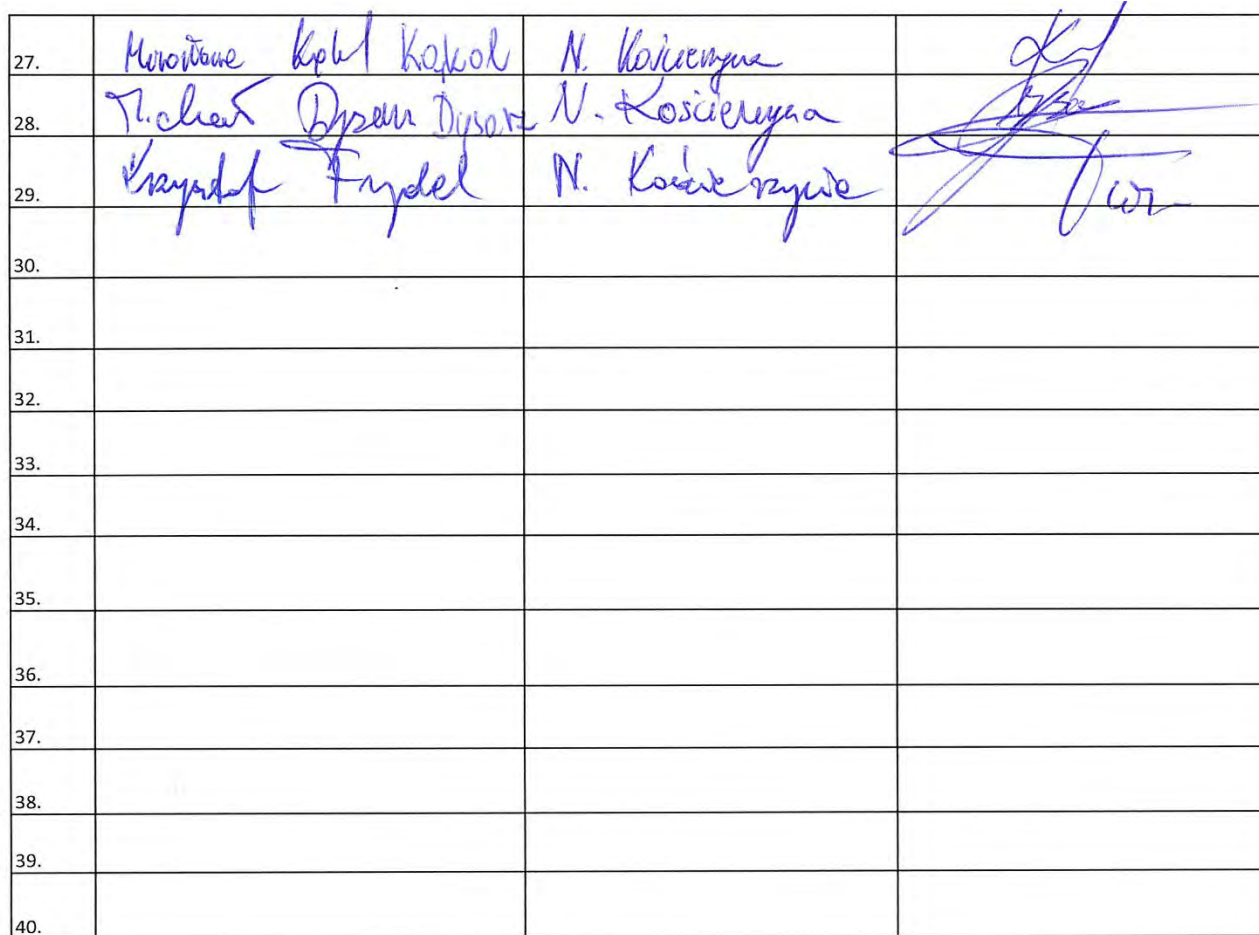 27. Mirosława Kąkol Kąkol N. Kościerzyna
28. Michał Dysarz Dysarz N. Kościerzyna
29. Krzysztof Frydel N. Kościerzynie
30.
31.
32.
33.
34.
35.
36.
37.
38.
39.
40.